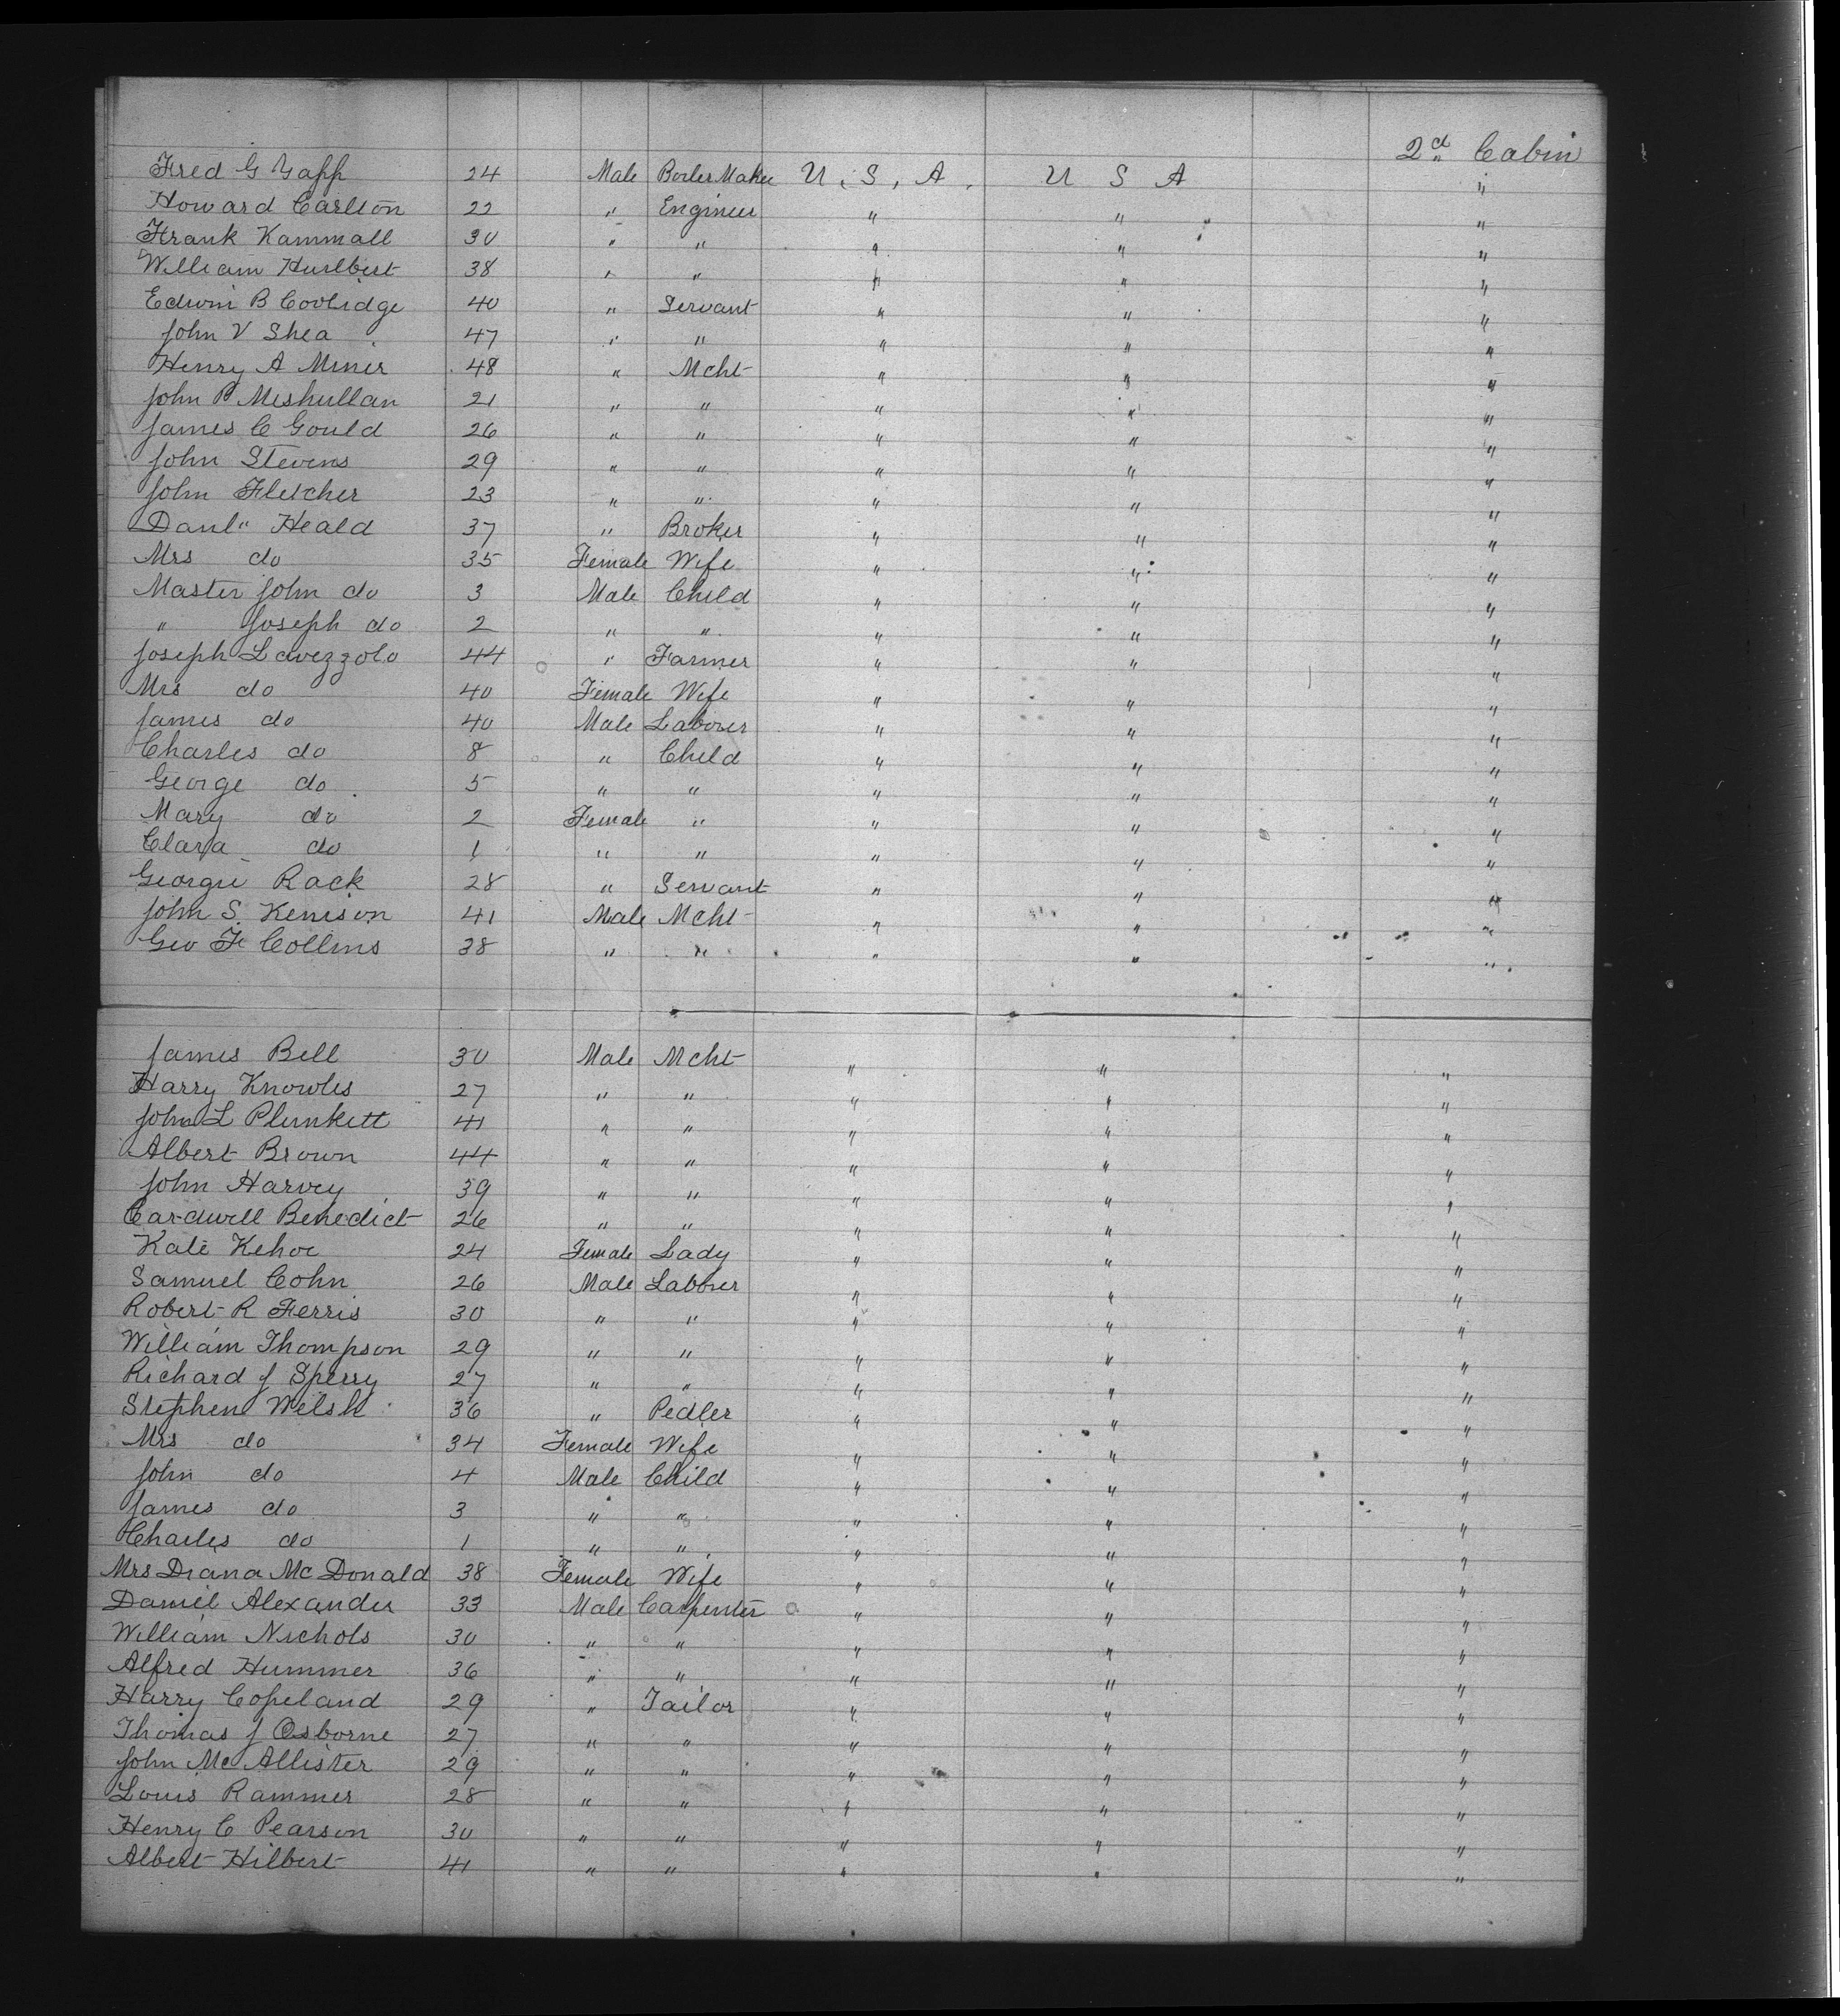 2d Cabin
Fred G Yapp 24 Male Boiler Maker U. S. A. U S A "
Howard Carlton 22 " Engineer " " "
Frank Kammall 30 " " " " "
William Hurlbert 38 " " " " "
Edwin B Coolidge 40 " Servant " " "
John V Shea 47 " " " " "
Henry A Miner 48 " Mcht " " "
John P Meshullan 21 " " " " "
James C Gould 26 " " " " "
John Stevens 29 " " " " "
John Fletcher 23 " " " " "
Danl" Heald 37 " Broker " " "
Mrs do 35 Female Wife " " "
Master John do 3 Male Child " " "
" Joseph do 2 " " " " "
Joseph Lavezzolo 44 " Farmer " " "
Mrs do 40 Female Wife " " "
James do 40 Male Laborer " " "
Charles do 8 " Child " " "
George do 5 " " " " "
Mary do 2 Female " " " "
Clara do 1 " " " " "
Georgie Rack 28 " Servant " " "
John S. Kenison 41 Male Mcht " " "
Geo F Collins 38 " " " " "
James Bell 30 Male Mcht " " "
Harry Knowles 27 " " " " "
John L Plunkett 41 " " " " "
Albert Brown 44 " " " " "
John Harvey 39 " " " " "
Cardwell Benedict 26 " " " " "
Kate Kehoe 24 Female Lady " " "
Samuel Cohn 26 Male Laborer " " "
Robert R Ferris 30 " " " " "
William Thompson 29 " " " " "
Richard J Sperry 27 " " " " "
Stephen Welsh 36 " Pedler " " "
Mrs do 34 Female Wife " " "
John do 4 Male Child " " "
James do 3 " " " " "
Charles do 1 " " " " "
Mrs Diana McDonald 38 Female Wife " " "
Daniel Alexander 33 Male Carpenter " " "
William Nichols 30 " " " " "
Alfred Hummer 36 " " " " "
Harry Copeland 29 " Tailor " " "
Thomas J Osborne 27 " " " " "
John McAllister 29 " " " " "
Louis Rammer 28 " " " " "
Henry C Pearson 30 " " " " "
Albert Hilbert 41 " " " " "